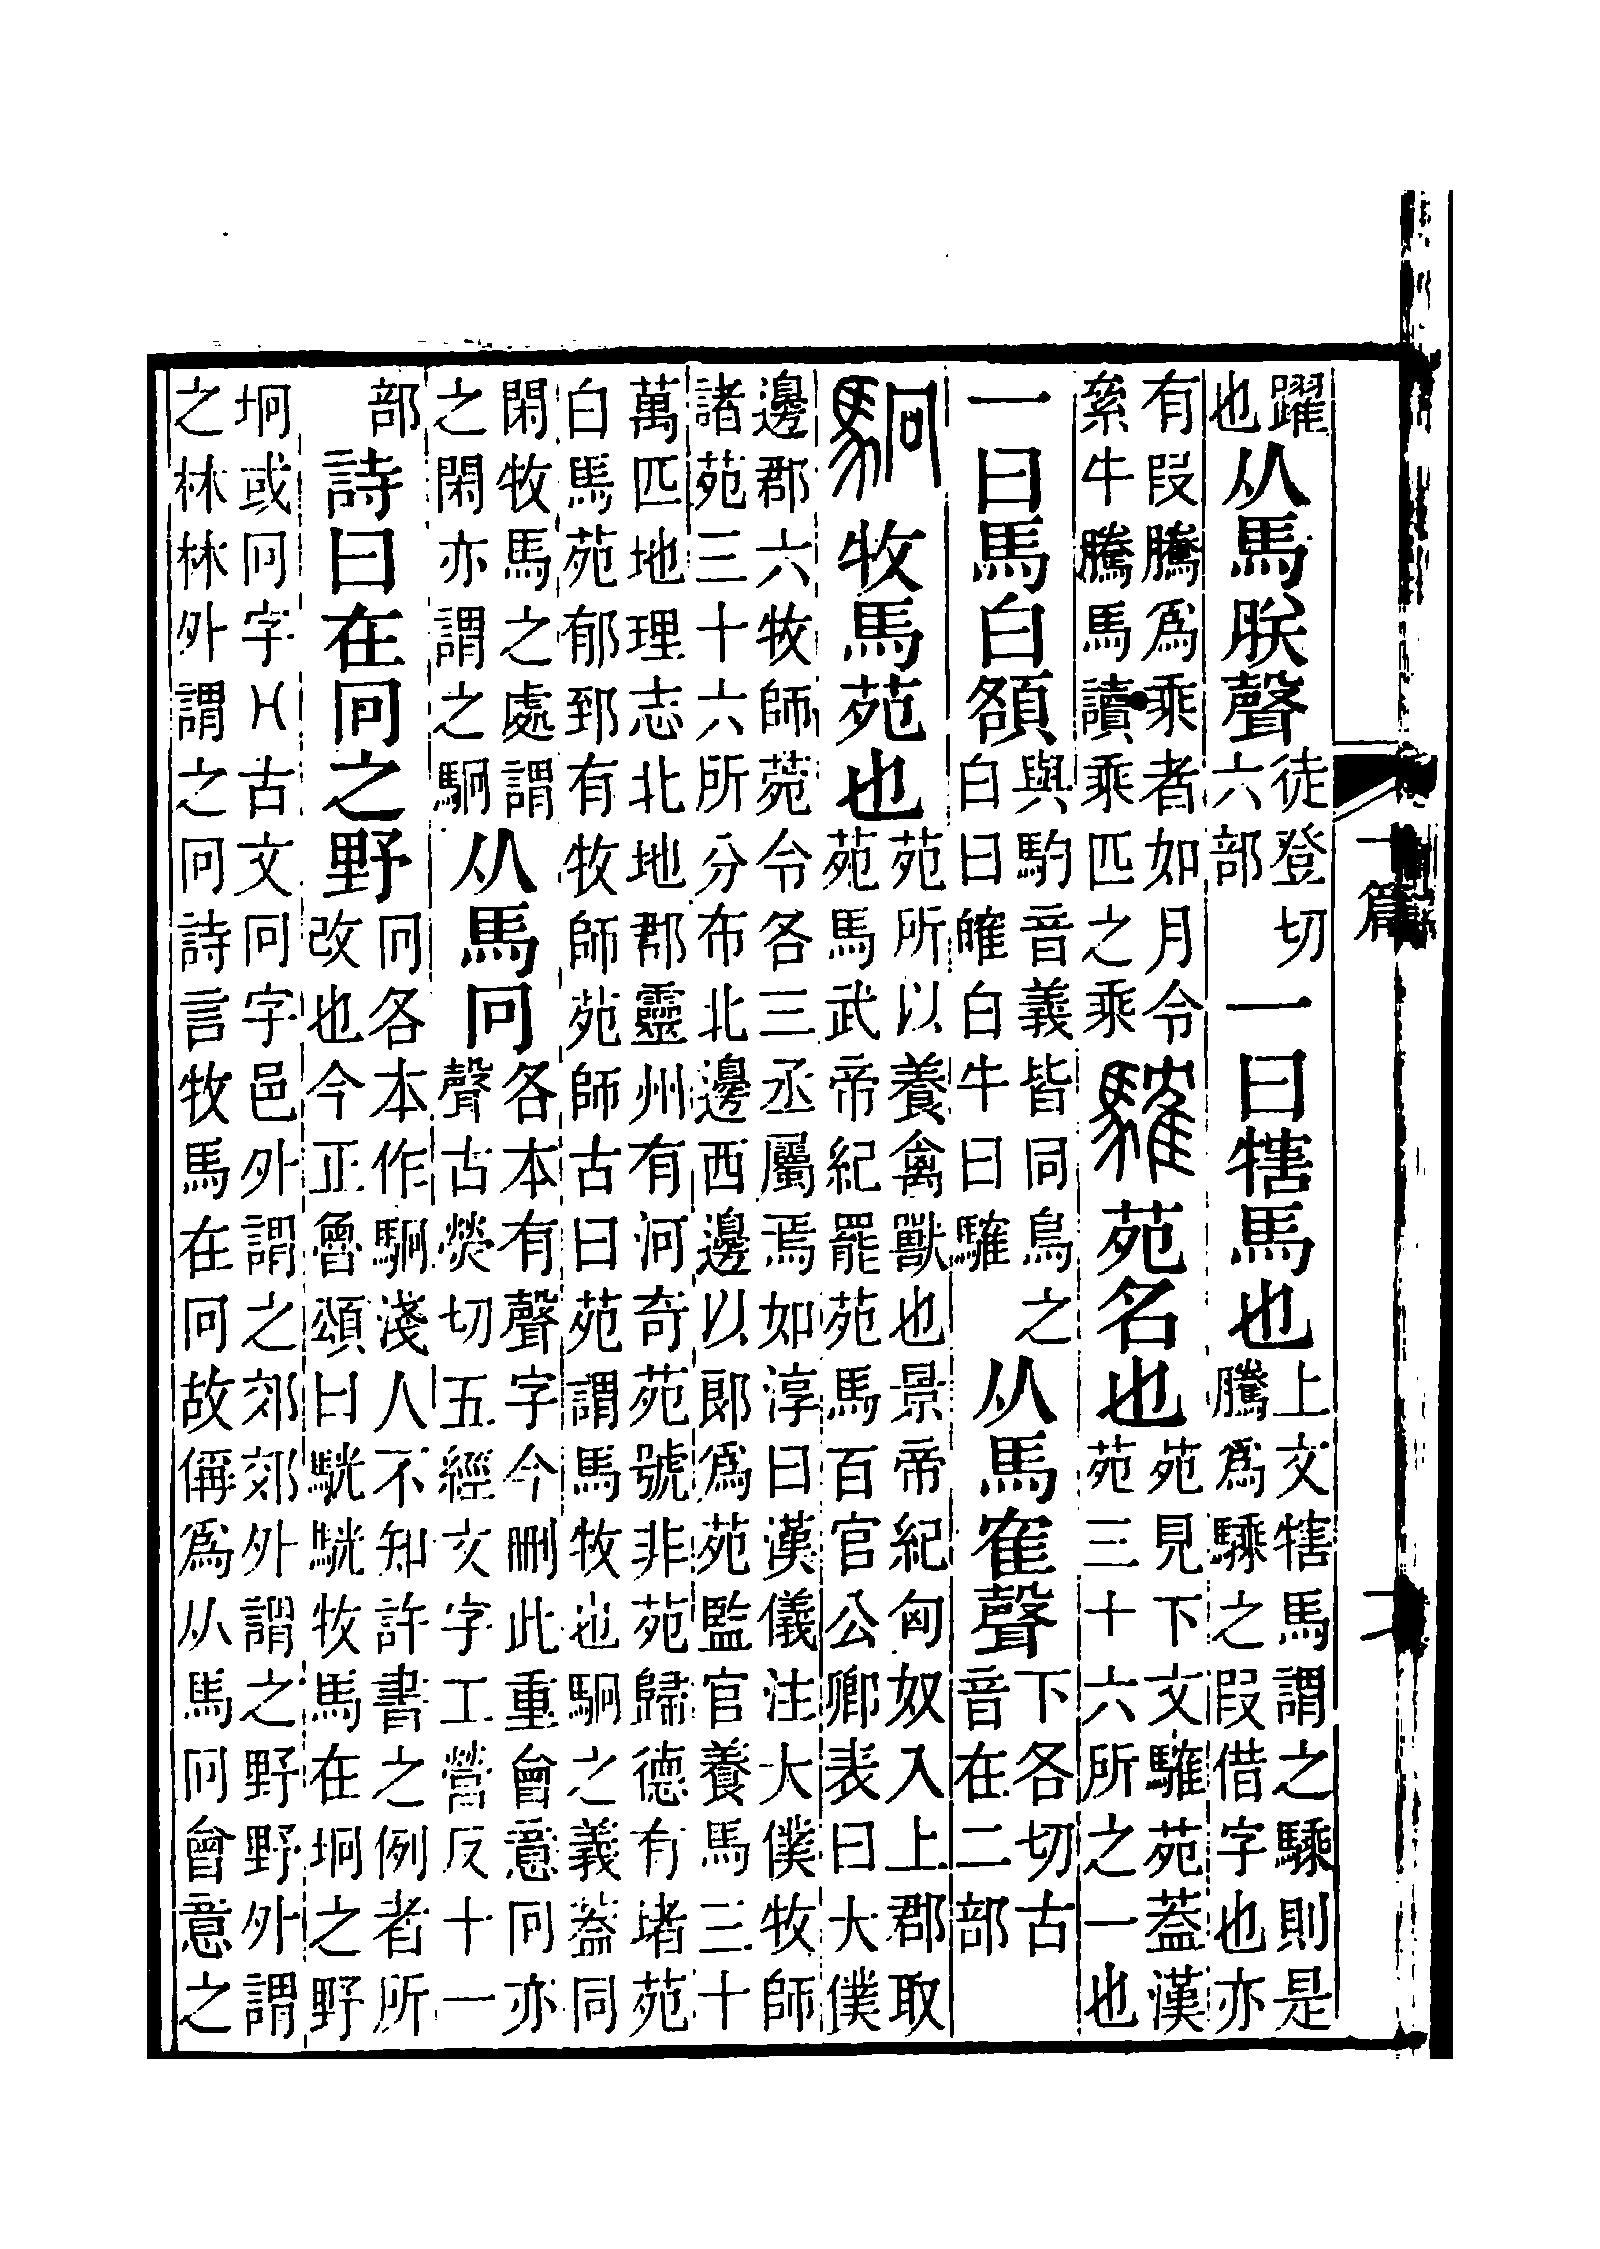 躍也从馬朕聲徒登切六部一曰犗馬也上文犗馬謂之騬則是騰爲騬之叚借字也亦
有叚騰爲乘者如月令絫牛騰馬讀乘匹之乘䮤苑名也苑見下文䮤苑葢漢苑三十六所之一也
一曰馬白頟與駒音義皆同鳥之白曰㿥白牛曰䮤从馬隺聲下各切古音在二部
駉牧馬苑也苑所以養禽獸也景帝紀匈奴入上郡取苑馬武帝紀罷苑馬百官公卿表曰大僕
邊郡六牧師菀令各三丞屬焉如淳曰漢儀注大僕牧師諸苑三十六所分布北邊西邊以郎爲苑監官養馬三十
萬匹地理志北地郡靈州有河奇苑號非苑歸德有堵苑白馬苑郁郅有牧師苑師古曰苑謂馬牧也駉之義葢同
閑牧馬之處謂之閑亦謂之駉从馬冋各本有聲字今刪此重會意冋亦聲古熒切五經文字工營反十一
部詩曰在冋之野冋各本作駉淺人不知許書之例者所改也今正魯頌曰駫駫牧馬在坰之野
坰或冋字冂古文冋字邑外謂之郊郊外謂之野野外謂之林林外謂之冋詩言牧馬在冋故偁爲从馬冋會意之